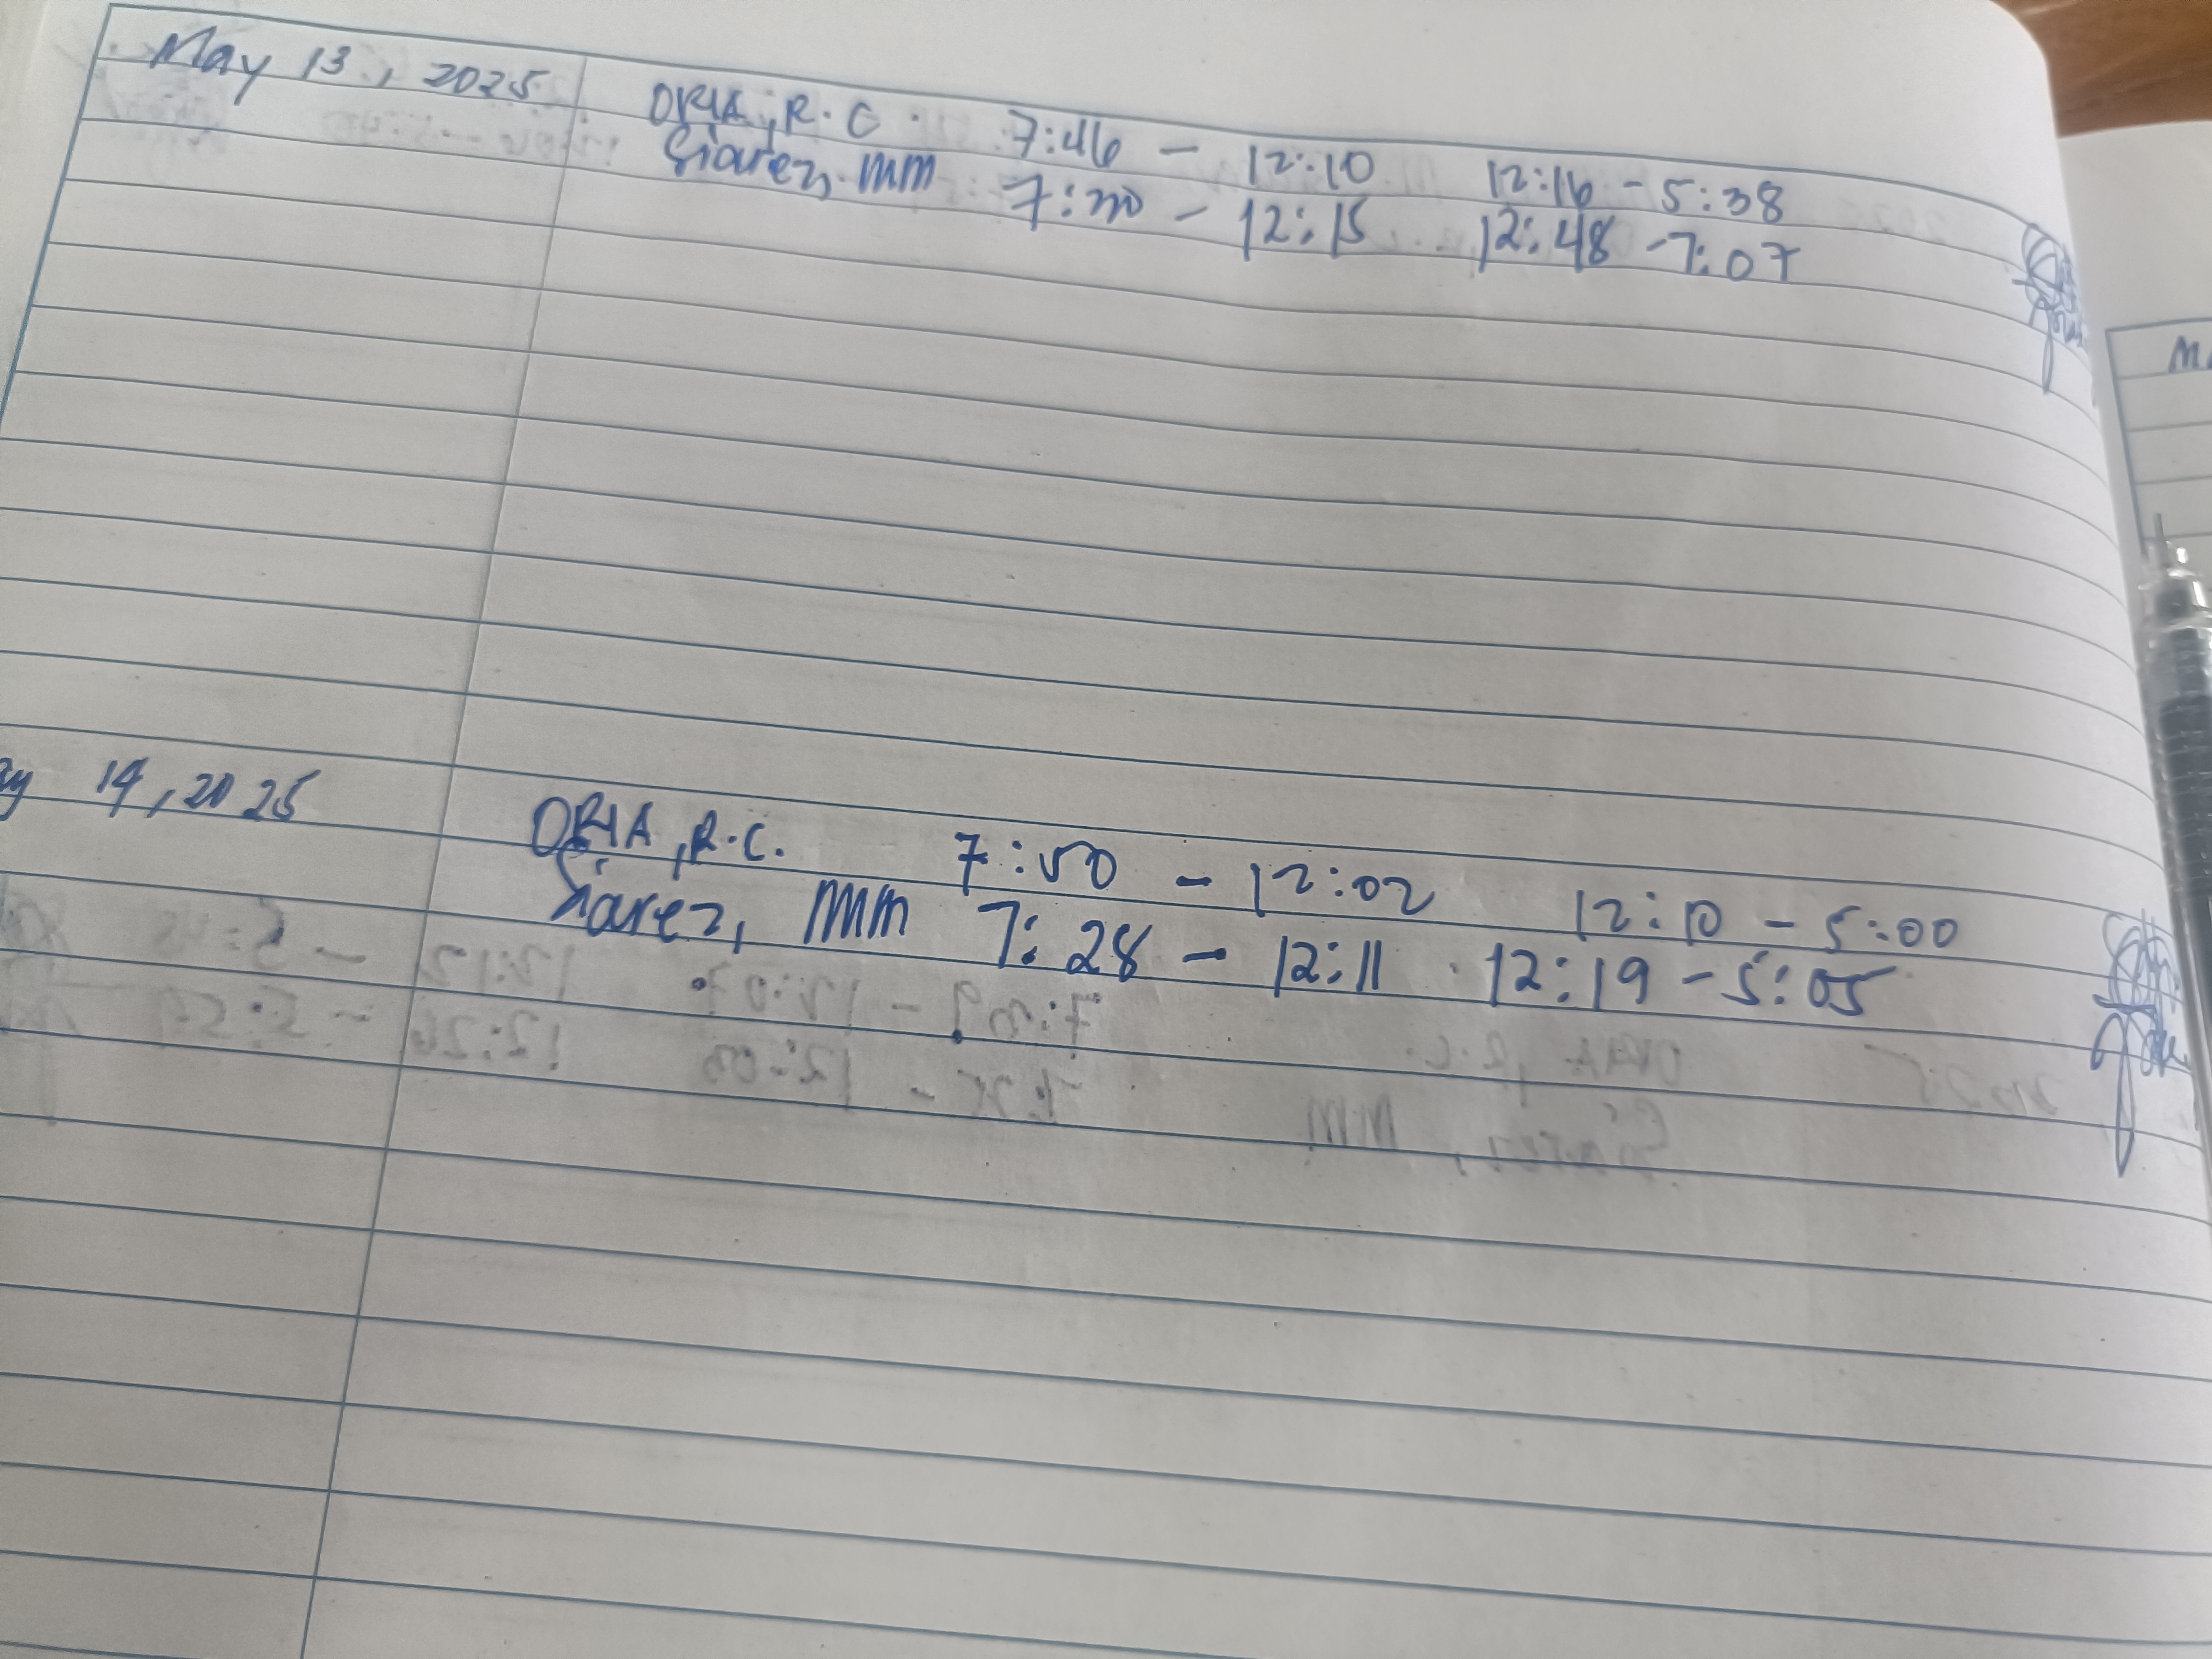 May 13, 2025 ORIA, R.C. 7:46 - 12:10 12:16 - 5:38
Siarez, MM 7:20 - 12:15 12:48 - 7:07
14, 2025 ORIA, R.C. 7:50 - 12:02 12:10 - 5:00
Siarez, MM 7:28 - 12:11 12:19 - 5:05